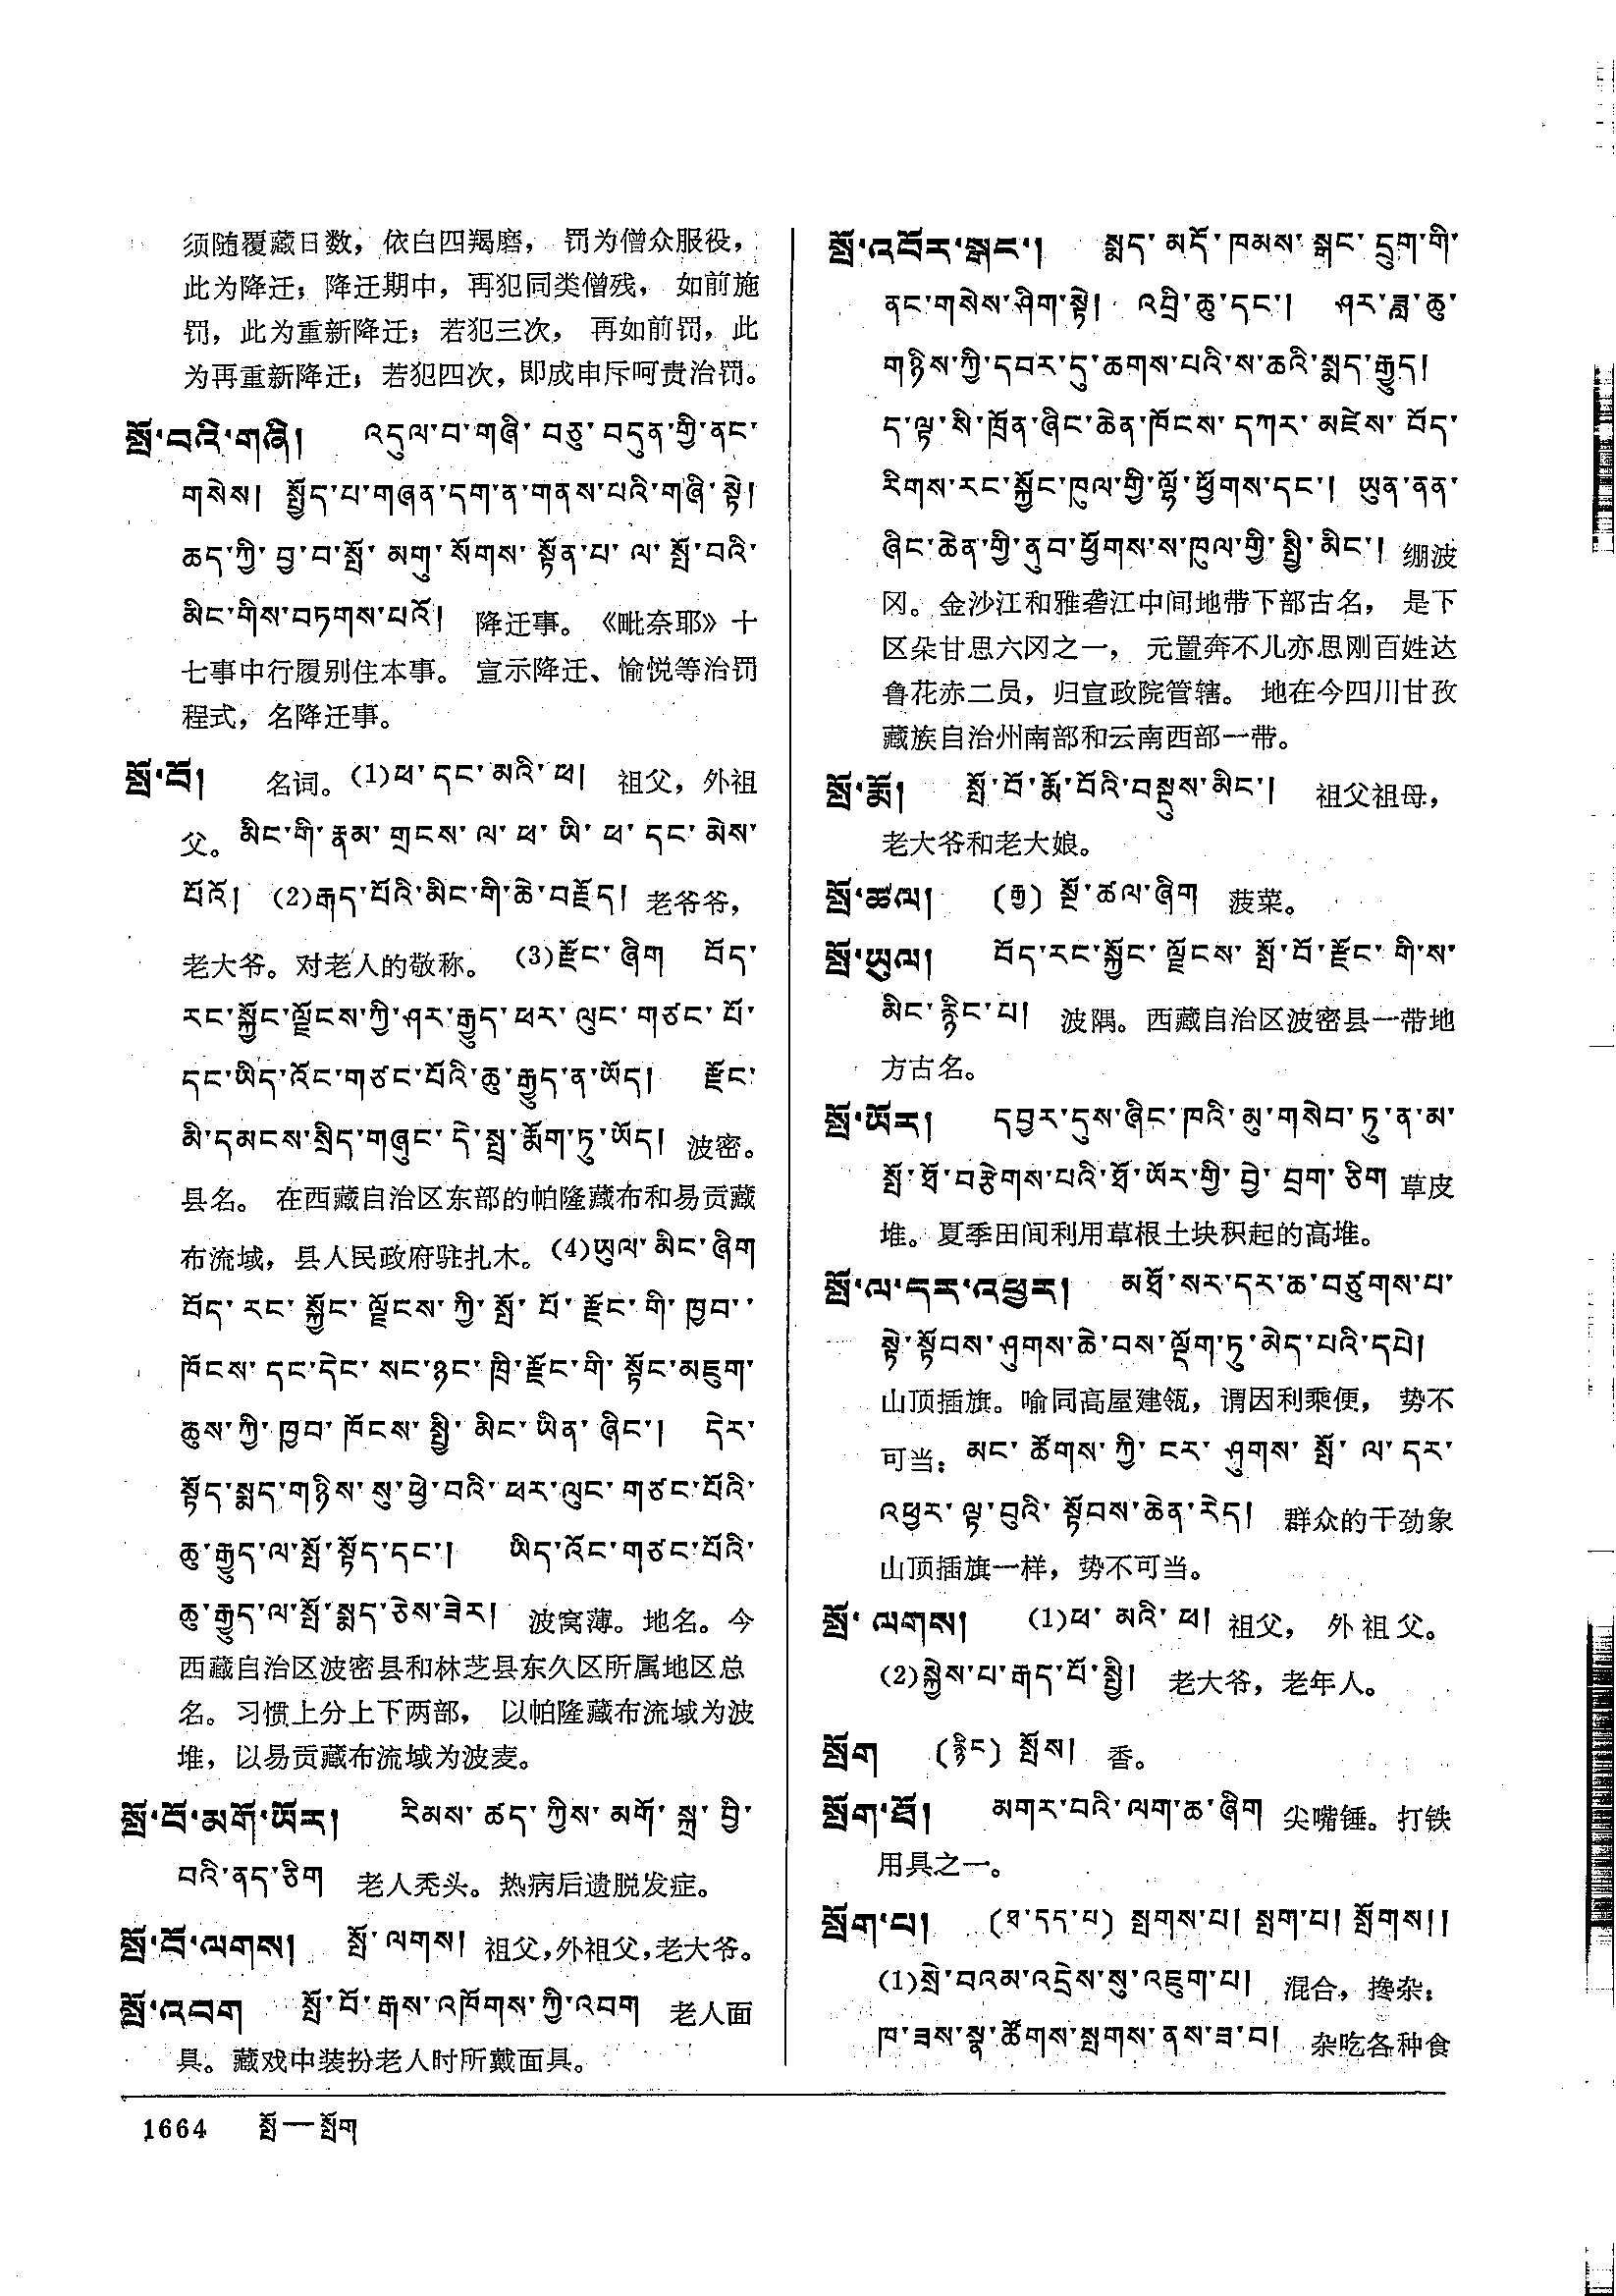 须随覆藏日数，依白四羯磨，罚为僧众服役，
此为降迁；降迁期中，再犯同类僧残，如前施
罚，此为重新降迁；若犯三次，再如前罚，此
为再重新降迁；若犯四次，即成申斥呵责治罚。
སྤོ་བའི་གཞི། འདུལ་བ་གཞི་བཅུ་བདུན་གྱི་ནང་
གསེས། སྤྱོད་པ་གཞན་དག་ན་གནས་པའི་གཞི་སྟེ།
ཆད་ཀྱི་བྱ་བ་སྤོ་མགུ་སོགས་སྟོན་པ་ལ་སྤོ་བའི་
མིང་གིས་བཏགས་པའོ། 降迁事。《毗奈耶》十
七事中行履别住本事。宣示降迁、愉悦等治罚
程式，名降迁事。
སྤོ་བོ། 名词。(1)ཕ་དང་མའི་ཕ། 祖父，外祖
父。མིང་གི་རྣམ་གྲངས་ལ་ཕ་ཡི་ཕ་དང་མེས་
པོའོ། (2)རྒད་པོའི་མིང་གི་ཆེ་བརྗོད། 老爷爷，
老大爷。对老人的敬称。(3)རྫོང་ཞིག བོད་
རང་སྐྱོང་ལྗོངས་ཀྱི་ཤར་རྒྱུད་ཕར་ལུང་གཙང་པོ་
དང་ཡིད་འོང་གཙང་པོའི་ཆུ་རྒྱུད་ན་ཡོད། རྫོང་
མི་དམངས་སྲིད་གཞུང་དེ་སྤྲ་རྨོག་ཏུ་ཡོད། 波密。
县名。在西藏自治区东部的帕隆藏布和易贡藏
布流域，县人民政府驻扎木。(4)ཡུལ་མིང་ཞིག
བོད་རང་སྐྱོང་ལྗོངས་ཀྱི་སྤོ་པོ་རྫོང་གི་ཁྱབ་
ཁོངས་དང་དེང་སང་ཉང་ཁྲི་རྫོང་གི་སྟོང་མཇུག་
ཆུས་ཀྱི་ཁྱབ་ཁོངས་སྤྱི་མིང་ཡིན་ཞིང་། དེར་
སྟོད་སྨད་གཉིས་སུ་ཕྱེ་བའི་ཕར་ལུང་གཙང་པོའི་
ཆུ་རྒྱུད་ལ་སྤོ་སྟོད་དང་། ཡིད་འོང་གཙང་པོའི་
ཆུ་རྒྱུད་ལ་སྤོ་སྨད་ཅེས་ཟེར། 波窝薄。地名。今
西藏自治区波密县和林芝县东久区所属地区总
名。习惯上分上下两部，以帕隆藏布流域为波
堆，以易贡藏布流域为波麦。
སྤོ་བོ་མགོ་ཡོར། རིམས་ཚད་ཀྱིས་མགོ་སྐྲ་བྱི་
བའི་ནད་ཅིག 老人秃头。热病后遗脱发症。
སྤོ་བོ་ལགས། སྤོ་ལགས། 祖父，外祖父，老大爷。
སྤོ་འབག སྤོ་བོ་རྒས་འཁོགས་ཀྱི་འབག 老人面
具。藏戏中装扮老人时所戴面具。
སྤོ་འབོར་སྒང་། སྨད་མདོ་ཁམས་སྒང་དྲུག་གི་
ནང་གསེས་ཤིག་སྟེ། འབྲི་ཆུ་དང་། ཤར་ཟླ་ཆུ་
གཉིས་ཀྱི་དབར་དུ་ཆགས་པའི་ས་ཆའི་སྨད་རྒྱུད།
ད་ལྟ་སི་ཁྲོན་ཞིང་ཆེན་ཁོངས་དཀར་མཛེས་བོད་
རིགས་རང་སྐྱོང་ཁུལ་གྱི་ལྷོ་ཕྱོགས་དང་། ཡུན་ནན་
ཞིང་ཆེན་གྱི་ནུབ་ཕྱོགས་ས་ཁུལ་གྱི་སྤྱི་མིང་། 绷波
冈。金沙江和雅砻江中间地带下部古名，是下
区朵甘思六冈之一，元置奔不儿亦思刚百姓达
鲁花赤二员，归宣政院管辖。地在今四川甘孜
藏族自治州南部和云南西部一带。
སྤོ་རྨོ། སྤོ་བོ་རྨོ་བོའི་བསྡུས་མིང་། 祖父祖母，
老大爷和老大娘。
སྤོ་ཚལ། (རྒྱ) སྔོ་ཚལ་ཞིག 菠菜。
སྤོ་ཡུལ། བོད་རང་སྐྱོང་ལྗོངས་སྤོ་བོ་རྫོང་གི་ས་
མིང་རྙིང་པ། 波隅。西藏自治区波密县一带地
方古名。
སྤོ་ཡོར། དབྱར་དུས་ཞིང་ཁའི་མུ་གསེབ་ཏུ་ན་མ་
སྤོ་ཐོ་བརྩེགས་པའི་ཐོ་ཡོར་གྱི་བྱེ་བྲག་ཅིག 草皮
堆。夏季田间利用草根土块积起的高堆。
སྤོ་ལ་དར་འཕྱར། མཐོ་སར་དར་ཆ་བཙུགས་པ་
སྟེ་སྟོབས་ཤུགས་ཆེ་བས་ལྡོག་ཏུ་མེད་པའི་དཔེ།
山顶插旗。喻同高屋建瓴，谓因利乘便，势不
可当：མང་ཚོགས་ཀྱི་ངར་ཤུགས་སྤོ་ལ་དར་
འཕྱར་ལྟ་བུའི་སྟོབས་ཆེན་རེད། 群众的干劲象
山顶插旗一样，势不可当。
སྤོ་ལགས། (1)ཕ་མའི་ཕ། 祖父，外祖父。
(2)སྐྱེས་པ་རྒད་པོ་སྤྱི། 老大爷，老年人。
སྤོག (རྙིང) སྤོས། 香。
སྤོག་ཐོ། མགར་བའི་ལག་ཆ་ཞིག 尖嘴锤。打铁
用具之一。
སྤོག་པ། (ཐ་དད་པ) སྤགས་པ། སྤག་པ། སྤོགས།།
(1)སྲེ་བའམ་འདྲེས་སུ་འཇུག་པ། 混合，搀杂：
ཁ་ཟས་སྣ་ཚོགས་སྤགས་ནས་ཟ་བ། 杂吃各种食
1664 སྤོ—སྤོག